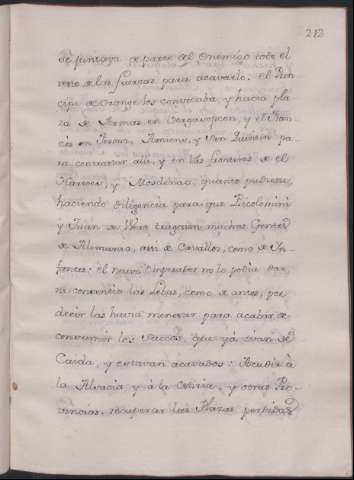 212
se juntaba a parte del Enemigo todo el
resto de las fuerzas para acavarlo: el Prin-
cipe de Orange los convocaba, y hacia pla-
za de Armas en Bergaopzon, y el Fran-
ces en Perona, Amiens, y San Quintin pa-
ra continuar aun, y en las fronteras de el
y Mosdenao, quanto pudiese,
haciendo diligencia para que Picolomini
y Juan de Wert traygan muchas Gentes
de Alemania, assi de Cavallos, como de In-
fantes: el nuevo Emperador no lo podia dar,
ni convenia las Levas, como de antes, por
decir las havia menester para acabar de
consumir los Suecos, que yá ivan de
Caida, y estavan acavados: Acudir à
la Alsacia y à la y otras Pro-
vincias, recuperar las Plazas perdidas